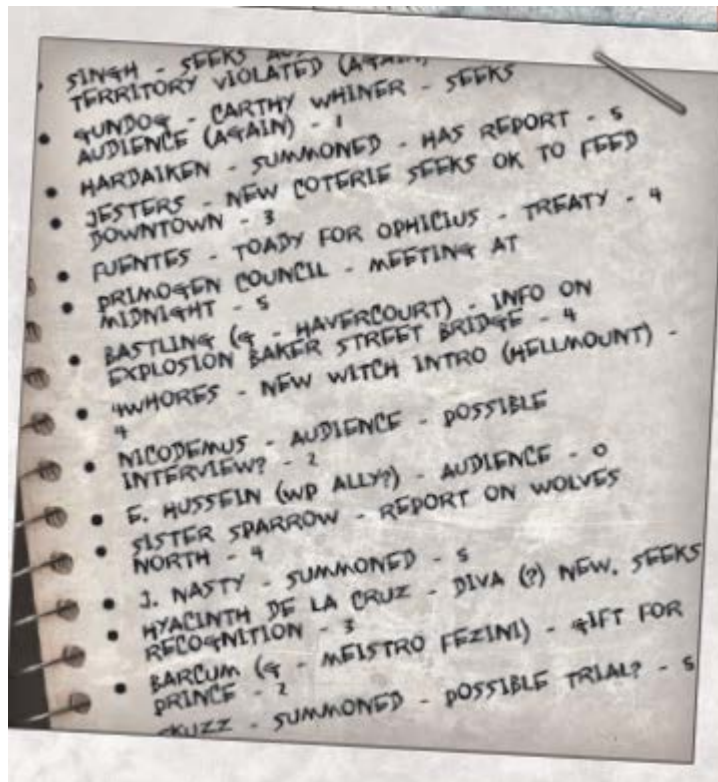 SINGH - SEEKS
TERRITORY VIOLATED (AGAIN)
• GUNDOG - CARTHY WHINER - SEEKS
AUDIENCE (AGAIN) - 1
• HARDAIKEN - SUMMONED - HAS REPORT - 5
• JESTERS - NEW COTERIE SEEKS OK TO FEED
DOWNTOWN - 3
• FUENTES - TOADY FOR OPHICIUS - TREATY - 4
• PRIMOGEN COUNCIL - MEETING AT
MIDNIGHT - 5
• BASTLING (G - HAVERCOURT) - INFO ON
EXPLOSION BAKER STREET BRIDGE - 4
• 4WHORES - NEW WITCH INTRO (HELLMOUNT) -
4
• NICODEMUS - AUDIENCE - POSSIBLE
INTERVIEW? - 2
• E. HUSSEIN (WP ALLY?) - AUDIENCE - 0
• SISTER SPARROW - REPORT ON WOLVES
NORTH - 4
• J. NASTY - SUMMONED - 5
• HYACINTH DE LA CRUZ - DIVA (?) NEW. SEEKS
RECOGNITION - 3
• BARCUM (G - MEISTRO FEZINI) - GIFT FOR
PRINCE - 2
SKUZZ - SUMMONED - POSSIBLE TRIAL? - 5